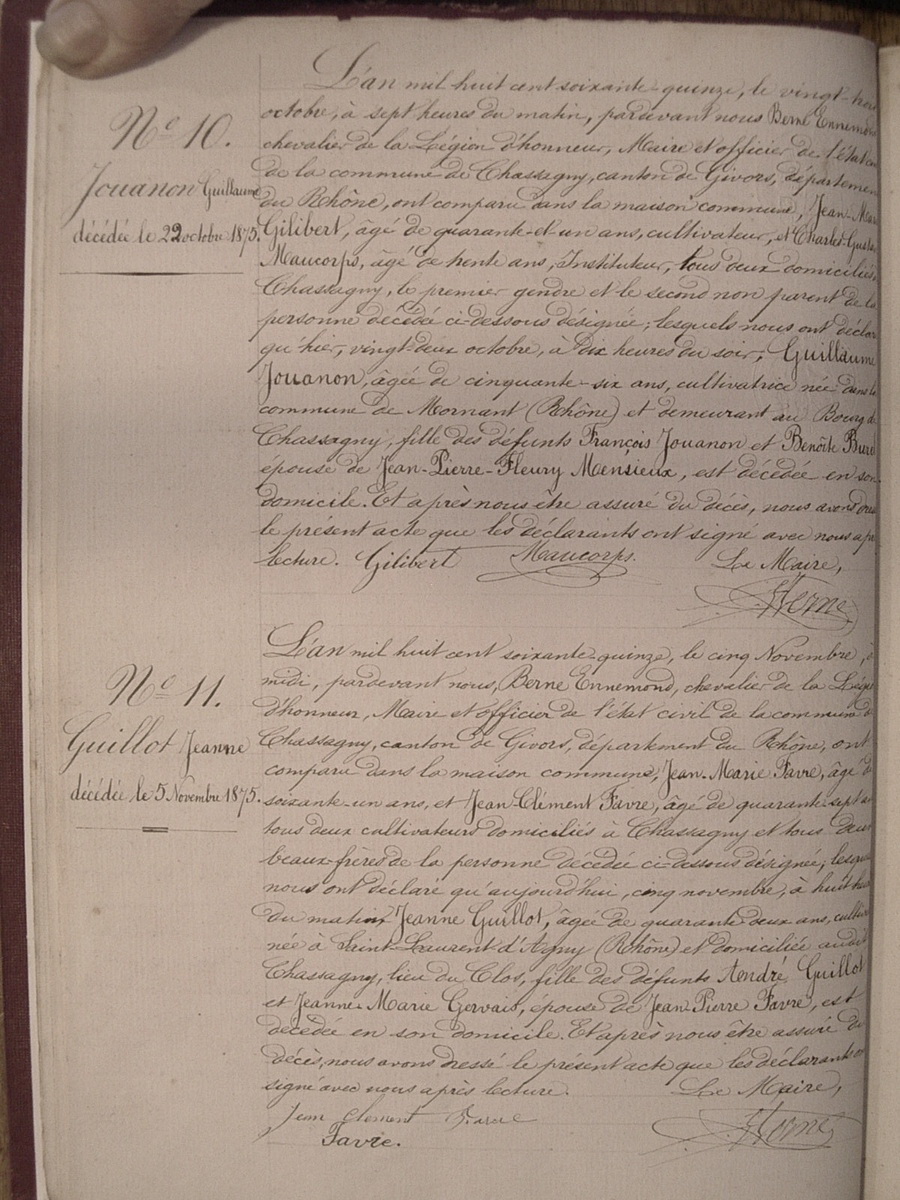 L'an mil huit cent soixante-quinze, le vingt-trois
octobre, à sept heures du matin, pardevant nous Berne Ennemond
chevalier de la Légion d'honneur, Maire et officier de l'état
de la commune de Chassagny, canton de Givors, département
du Rhône, ont comparu dans la maison commune, Jean-Marie
Gilibert, âgé de quarante-et-un ans, cultivateur, et Charles-Gustave
Maucorps, âgé de trente ans, Instituteur, tous deux domiciliés
Chassagny, le premier gendre et le second non parent de la
personne décédée ci-dessous désignée; lesquels nous ont déclaré
qu'hier, vingt-deux octobre, à dix heures du soir, Guillaume
Jouanon, âgée de cinquante-six ans, cultivatrice née dans la
commune de Mornant (Rhône) et demeurant au Bourg de
Chassagny, fille des défunts François Jouanon et Benoîte
épouse de Jean-Pierre-Fleury Mensieux, est décédée en son
domicile. Et après nous être assuré du décès, nous avons
le présent acte que les déclarants ont signé avec nous après
lecture. Gilibert Maucorps. Le Maire,
HBerne
No 10.
Jouanon Guillaume
décédée le 22 octobre 1875.
L'an mil huit cent soixante-quinze, le cinq Novembre, à
midi, pardevant nous, Berne Ennemond, chevalier de la Légion
d'honneur, Maire et officier de l'état civil de la commune de
Chassagny, canton de Givors, département du Rhône, ont
comparu dans la maison commune, Jean-Marie Favre, âgé de
soixante-un ans, et Jean-Clément Favre, âgé de quarante-sept ans
tous deux cultivateurs domiciliés à Chassagny et tous deux
beaux-frères de la personne décédée ci-dessous désignée, lesquels
nous ont déclaré qu'aujourd'hui, cinq novembre, à huit heures
du matin Jeanne Guillot, âgée de quarante deux ans,
née à Saint-Laurent d'Agny (Rhône) et domiciliée audit
Chassagny, lieu du Clos, fille des défunts André Guillot
et Jeanne-Marie Gervais, épouse de Jean Pierre Favre, est
décédée en son domicile. Et après nous être assuré du
décès, nous avons dressé le présent acte que les déclarants ont
signé avec nous après lecture. Le Maire,
Jean Clement Favre HBerne
Favre.
No 11.
Guillot Jeanne
décédée le 5 Novembre 1875.